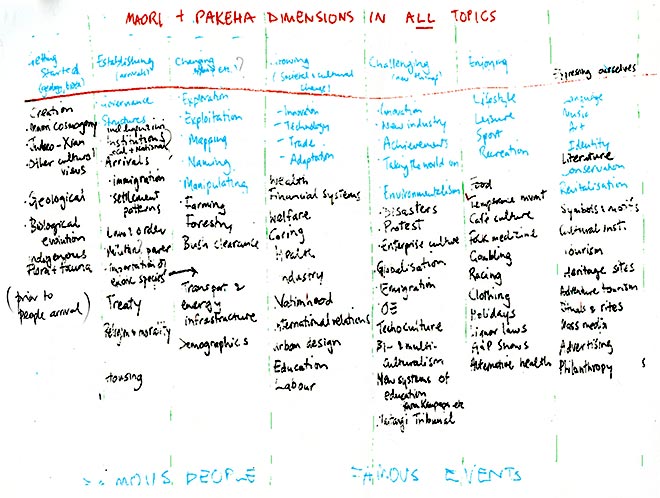 MAORI + PAKEHA DIMENSIONS IN ALL TOPICS
Started
Establishing
(arrivals)
Changing
Challenging
Enjoying
Expressing ourselves
Creation
Maori cosmogony
Judeo-Xian
Other cultural
views
Geological
Biological
evolution
Indigenous
flora + fauna
(prior to
people arrival)
Governance
Structures
Institutions
local + national
Arrivals
immigration
settlement
patterns
Law & order
Political power
importation of
exotic species
Treaty
Religion & morality
Housing
Exploration
Exploitation
Mapping
Naming
Manipulating
Farming
Forestry
Bush clearance
Transport &
energy
infrastructure
Demographics
(societal & cultural
change)
- Innovation
- Technology
- Trade
- Adaptation
Wealth
Financial systems
Welfare
Caring
Health
Industry
Nationhood
International relations
urban design
Education
Labour
Innovation
New industry
Achievements
Taking the world on
Environmentalism
Disasters
Protest
Enterprise culture
Globalisation
Emigration
OE
Technoculture
Bi- & multi-
culturalism
New systems of
education
Waitangi Tribunal
Lifestyle
Leisure
Sport
Recreation
Food
Temperance mvmt
Café culture
Folk medicine
Gambling
Racing
Clothing
Holidays
Liquor laws
A&P shows
Alternative health
Language
Music
Art
Identity
Literature
Conservation
Revitalisation
Symbols & motifs
Cultural inst.
Tourism
Heritage sites
Adventure tourism
Rituals & rites
Mass media
Advertising
Philanthropy
FAMOUS PEOPLE
FAMOUS EVENTS